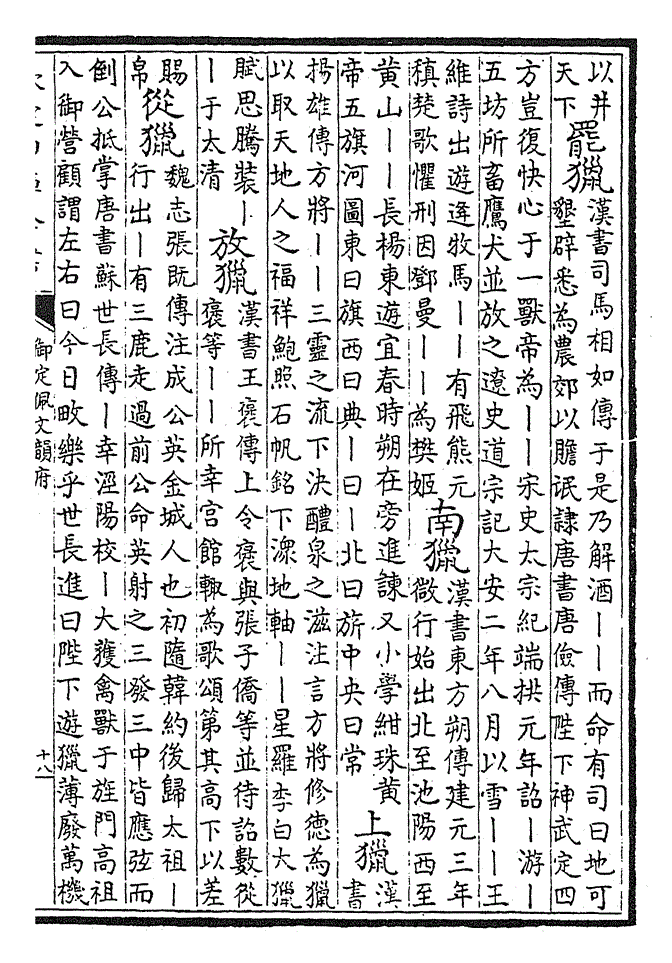 以井
天下
罷獵
漢書司馬相如傳于是乃解酒——而命有司曰地可
墾辟悉為農郊以贍氓隸唐書唐儉傳陛下神武定四
方豈復快心于一獸帝為——宋史太宗紀端拱元年詔—游—
五坊所畜鷹犬並放之遼史道宗記大安二年八月以雪——王
維詩出遊逢牧馬——有飛熊元
稹楚歌懼刑因鄧曼——為樊姬
南獵
漢書東方朔傳建元三年
微行始出北至池陽西至
黃山——長楊東遊宜春時朔在旁進諫又小學紺珠黃
帝五旗河圖東曰旗西曰典—曰—北曰旂中央曰常
上獵
漢
書
揚雄傳方將——三靈之流下決醴泉之滋注言方將修德為獵
以取天地人之福祥鮑照石帆銘下潀地軸——星羅李白大獵
賦思騰裝—
—于太清
放獵
漢書王褒傳上令褒與張子僑等並待詔數從
褒等——所幸宮館輒為歌頌第其高下以差
賜
帛
從獵
魏志張既傳注成公英金城人也初隨韓約後歸太祖—
行出—有三鹿走過前公命英射之三發三中皆應弦而
倒公抵掌唐書蘇世長傳—幸涇陽校—大獲禽獸于旌門高祖
入御營顧謂左右曰今日畋樂乎世長進曰陛下遊獵薄廢萬機
御定佩文韻府
十八